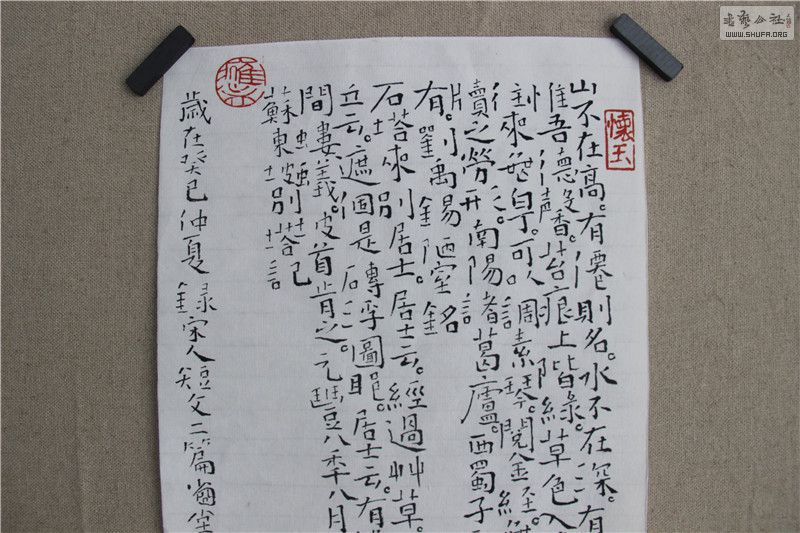 山不在高。有僊則名。水不在深。有
惟吾德馨。苔痕上階綠。草色入
來無白丁。可以調素琴。閱金經。
牘之勞形。南陽諸葛廬。西蜀子
有。劉禹錫陋室銘
石塔來別居士。居士云。經過艸草。
立云。遮個是磚浮圖耶。居士云。有
間螻蟻。坡首肯之。元豐八年八月
蘇東坡別石塔記
歲在癸巳仲夏錄宋人短文二篇
懷玉
書藝公社
WWW.SHUFA.ORG